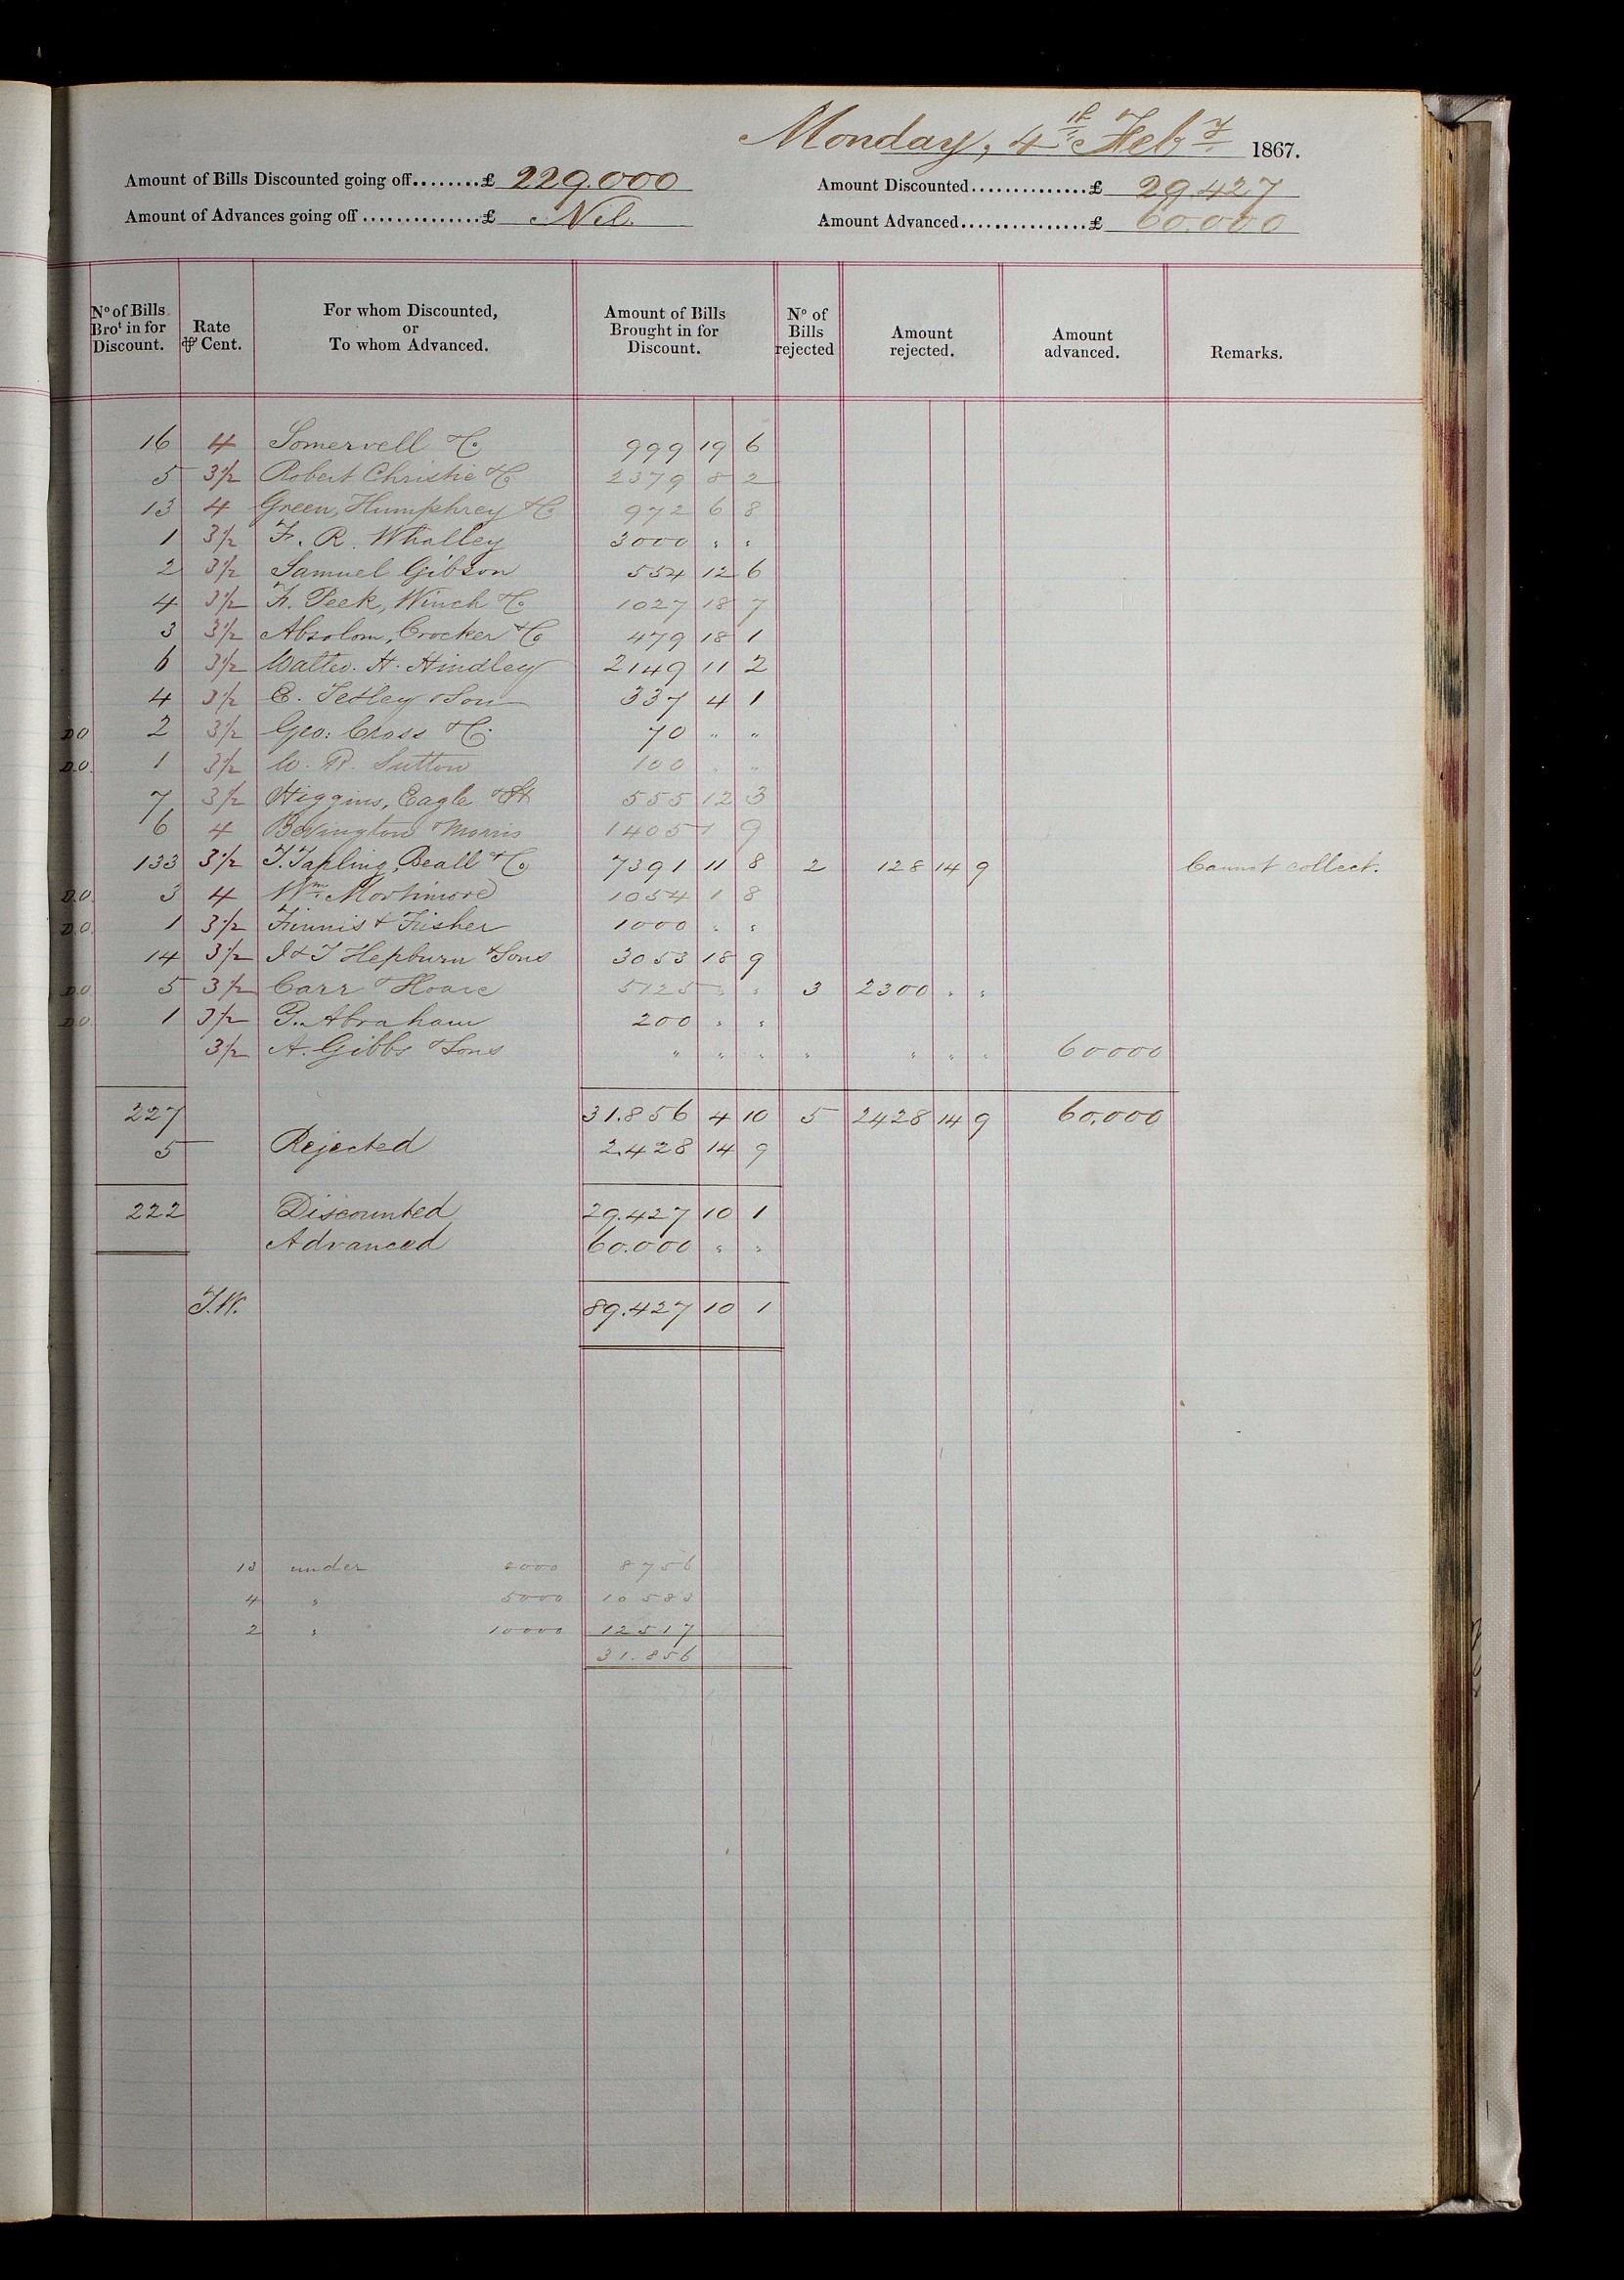 Monday, 4th Feby 1867.
Amount of Bills Discounted going off........£ 229.000 Amount Discounted..............£ 29427
Amount of Advances going off..............£ Nil. Amount Advanced...............£ 60.000
No of Bills Brot in for Discount. Rate ⅌ Cent. For whom Discounted, or To whom Advanced. Amount of Bills Brought in for Discount. No of Bills rejected Amount rejected. Amount advanced. Remarks.
16 4 Somervell & Co 999 19 6
5 3½ Robert Christie & Co 2379 8 2
13 4 Green, Humphrey & Co 972 6 8
1 3½ F. R. Whalley 3000 " "
2 3½ Samuel Gibson 554 12 6
4 3½ F. Peek, Winch & Co 1027 18 7
3 3½ Absolom, Crocker & Co 479 18 1
6 3½ Walter. H. Hindley 2149 11 2
4 3½ E. Tetley & Son 337 4 1
D.O 2 3½ Geo: Cross & Co 70 " "
D.O. 1 3½ W. R. Sutton 100 " "
7 3½ Higgins, Eagle & H 555 12 3
6 4 Bevington & Morris 1405 1 9
133 3½ T. Tapling, Beall & Co 7391 11 8 2 128 14 9 Cannot collect.
D.O. 3 4 Wm Mortimore 1054 1 8
D.O. 1 3½ Finnis & Fisher 1000 " "
14 3½ J & T Hepburn & Sons 3053 18 9
D.O. 5 3½ Carr & Hoare 5125 " " 3 2300 " "
D.O 1 3½ P. Abraham 200 " "
3½ A. Gibbs & Sons " " " " " " " 60000
227 31.856 4 10 5 2428 14 9 60.000
5 Rejected 2.428 14 9
222 Discounted 29.427 10 1
Advanced 60.000 " "
J.W. 89.427 10 1
13 under 2000 8756
4 " 5000 10583
2 " 10000 12517
31.856